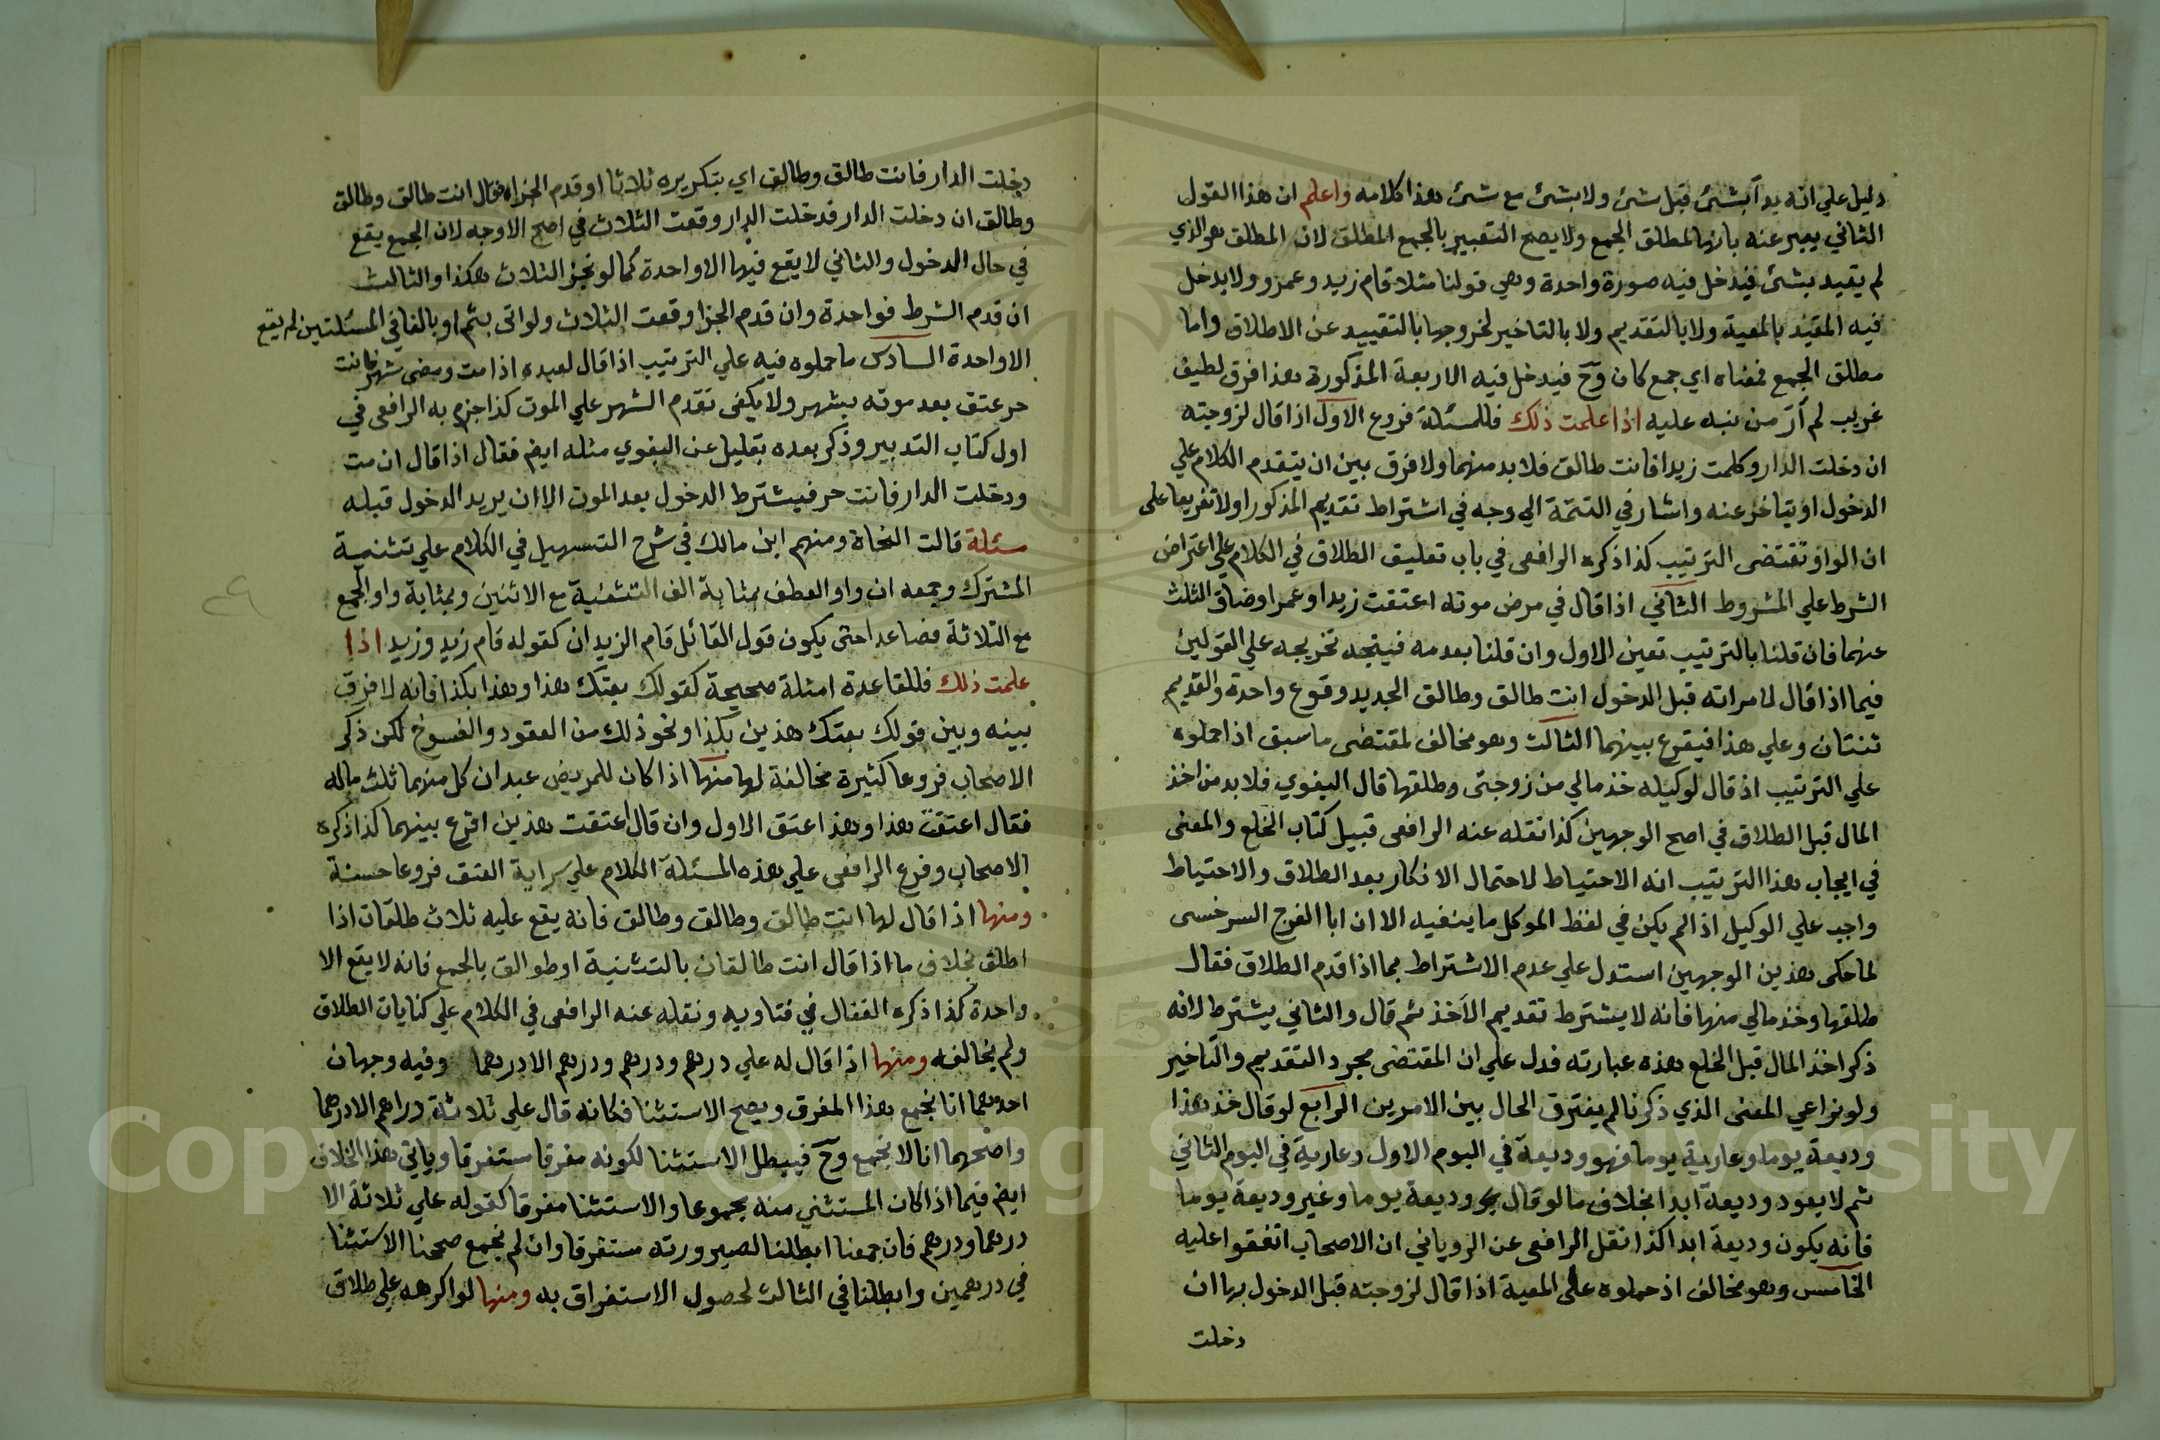 دليل علي انه يدا بشئ قبل شئ ولا بشئ مع شئ هذا كلامه واعلم ان هذا القول
الثاني يعبر عنه بانها لمطلق الجمع ولا يصح التعبير بالجمع المطلق لان المطلق هو الذي
لم يقيد بشئ فيدخل فيه صورة واحدة وهي قولنا مثلا قام زيد وعمرو ولا يدخل
فيه المقيد بالمعية ولا بالتقديم ولا بالتاخير لخروجها بالتقييد عن الاطلاق واما
مطلق الجمع فمعناه اي جمع كان وح فيدخل فيه الاربعة المذكورة هذا فرق لطيف
غريب لم ار من نبه عليه اذا علمت ذلك فللمسئلة فروع الاول اذا قال لزوجته
ان دخلت الدار وكلمت زيدا فانت طالق فلا بد منهما ولا فرق بين ان يتقدم الكلام علي
الدخول او يتاخر عنه واشار في التتمة الي وجه في اشتراط تقديم المذكور اولا تفريعا على
ان الواو تقتضى الترتيب كذا ذكره الرافعى في باب تعليق الطلاق في الكلام علي اعتراض
الشرط علي المشروط الثاني اذا قال في مرض موته اعتقت زيدا وعمرا وضاق الثلث
عنهما فان قلنا بالترتيب تعين الاول وان قلنا بعدمه فيتجه تخريجه علي القولين
فيما اذا قال لامراته قبل الدخول انت طالق وطالق الجديد وقوع واحدة والقديم
ثنتان وعلي هذا فيقرع بينهما الثالث وهو مخالف لمقتضى ما سبق اذا حملوه
علي الترتيب اذ قال لوكيله خذ مالي من زوجتى وطلقها قال البغوي فلا بد من اخذ
المال قبل الطلاق في اصح الوجهين كذا نقله عنه الرافعى قبيل كتاب الخلع والمعنى
في ايجاب هذا الترتيب انه الاحتياط لاحتمال الانكار بعد الطلاق والاحتياط
واجب علي الوكيل اذا لم يكن في لفظ الموكل ما ينفيه الا ان ابا الفرج السرخسى
لما حكى هذين الوجهين استدل علي عدم الاشتراط بما اذا قدم الطلاق فقال
طلقها وخذ مالي منها فانه لا يشترط تقديم الاخذ ثم قال والثاني يشترط لانه
ذكر اخذ المال قبل الخلع هذه عبارته فدل علي ان المقتضى مجرد التقديم والتاخير
ولو نراعي المعنى الذي ذكرنا لم يفترق الحال بين الامرين الرابع لو قال خذ هذا
وديعة يوما وعارية يوما فهو وديعة في اليوم الاول وعارية في اليوم الثاني
ثم لا يعود وديعة ابدا بخلاف ما لو قال وديعة يوما وغير وديعة يوما
فانه يكون وديعة ابدا كذا نقل الرافعى عن الروياني ان الاصحاب اتفقوا عليه
الخامس وهو مخالف اذ حملوه على المعية اذا قال لزوجته قبل الدخول بها ان
دخلت
دخلت الدار فانت طالق وطالق اي بتكريره ثلاثا او قدم الجزاء فقال انت طالق وطالق
وطالق ان دخلت الدار فدخلت الدار وقعت الثلاث في اصح الاوجه لان الجمع يقع
في حال الدخول والثاني لا يقع فيها الا واحدة كما لو نجز الثلاث هكذا والثالث
ان قدم الشرط فواحدة وان قدم الجزا وقعت الثلاث ولو اتى بثم او بالفا في المسئلتين لم يقع
الا واحدة السادس ما حملوه فيه علي الترتيب اذا قال لعبده اذا مت ومضى شهر فانت
حر عتق بعد موته بشهر ولا يكفى تقدم الشهر علي الموت كذا جزم به الرافعى في
اول كتاب التدبير وذكر بعده بقليل عن البغوي مثله ايض فقال اذا قال ان مت
ودخلت الدار فانت حر فيشترط الدخول بعد الموت الا ان يريد الدخول قبله
مسئلة قالت النحاة ومنهم ابن مالك في شرح التسهيل في الكلام علي تثنية
المشترك وجمعه ان واو العطف بمثابة الف التثنية مع الاثنين وبمثابة واو الجمع
مع الثلاثة فصاعدا حتى يكون قول القائل قام الزيدان كقوله قام زيد وزيد اذا
علمت ذلك فللقاعدة امثلة صحيحة كقولك بعتك هذا وهذا بكذا فانه لا فرق
بينه وبين قولك بعتك هذين بكذا ونحو ذلك من العقود والفسوخ لكن ذكر
الاصحاب فروعا كثيرة مخالفة لها منها اذا كان للمريض عبدان كل منهما ثلث ماله
فقال اعتقت هذا وهذا عتق الاول وان قال اعتقت هذين اقرع بينهما كذا ذكره
الاصحاب وفرع الرافعى علي هذه المسئلة الكلام علي سراية العتق فروعا حسنة
ومنها اذا قال لها انت طالق وطالق وطالق فانه يقع عليه ثلاث طلقات اذا
اطلق بخلاف ما اذا قال انت طالقان بالتثنية او طوالق بالجمع فانه لا يقع الا
واحدة كذا ذكره القفال في فتاويه ونقله عنه الرافعى في الكلام علي كنايات الطلاق
ولم يخالفه ومنها اذا قال له علي درهم ودرهم ودرهم الا درهما وفيه وجهان
احدهما انا نجمع هذا المفرق ويصح الاستثنا فكانه قال علي ثلاثة دراهم الا درهما
واصحهما انا لا نجمع وح فيبطل الاستثنا لكونه مفرقا مستغرقا وياتي هذا الخلاف
ايض فيما اذا كان المستثني منه مجموعا والاستثنا مفرقا كقوله علي ثلاثة الا
درهما ودرهم فان جمعنا ابطلنا لصيرورته مستغرقا وان لم نجمع صححنا الاستثنا
في درهمين وابطلنا في الثالث لحصول الاستغراق به ومنها لو اكرهه علي طلاق
Copyright © King Saud University